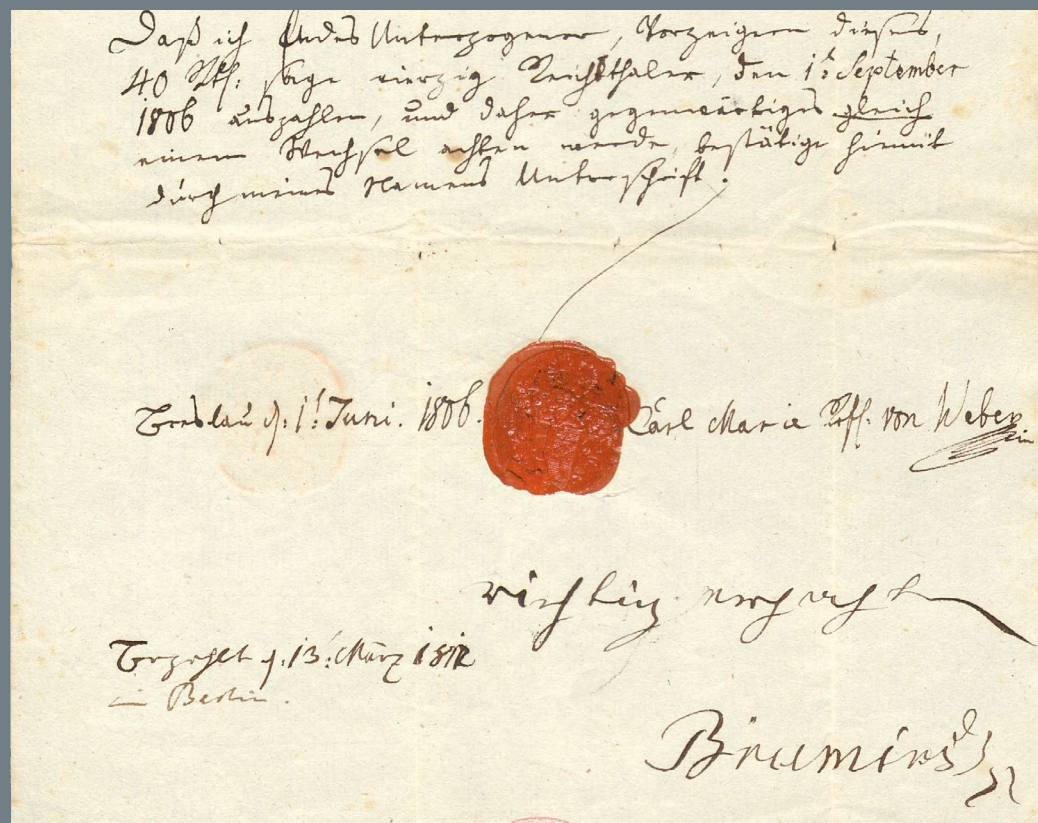 Daß ich Endes Unterzogener, Vorzeigern dieses,
40 Rth: sage vierzig Reichsthaler, den 1t: September
1806 auszahlen, und daher gegenwärtiges gleich
einem Wechsel achten werde, bestätige hiemit
durch meines Namens Unterschrift.
Breslau d: 1t Juni. 1806.
Carl Marie von Weber
richtig
Bezahlt d: 13: März 1812
in Berlin.